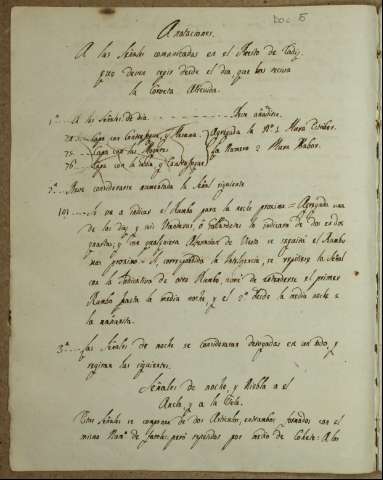 Doc 5
Anotaciones.
A las Señales comunicadas en el Puerto de Cadiz
que deven regir desde el dia que las reciva
la Corveta Atrevida.
1.ª A las Señales de dia Deve añadirse.
74 Capa con Trinquete y Mesana Agregada la N.º 1 Mura Estribor.
75 Capa con las Mayores
76 Capa con la Gabia y Numero 2 Mura Babor.
2.ª Deve considerarse aumentada la Señal siguiente
191 Se va a indicar el Rumbo para la noche proxima = Agregada una
de los dias y sus Ventosas, ó Gallardetes se indicara de dos en dos
quartas; y con qualquiera alteracion de Viento se seguirá el Rumbo
mas proximo = Si, correspondida la Inteligencia, se repitiese la Señal
con la Indicativa de otro Rumbo, havrá de entenderse el primer
Rumbo hasta la media noche y el 2.º desde la media noche a
la mañanita.
3.ª Las Señales de noche se consideraran derogadas en un todo, y
regiran las siguientes.
Señales de noche, y Niebla a el
Ancla, y a la Vela.
Estas Señales se componen de dos Articulos, entrambos formados con el
mismo Num.º de faroles; pero repetidos por medio de Cohete: A los